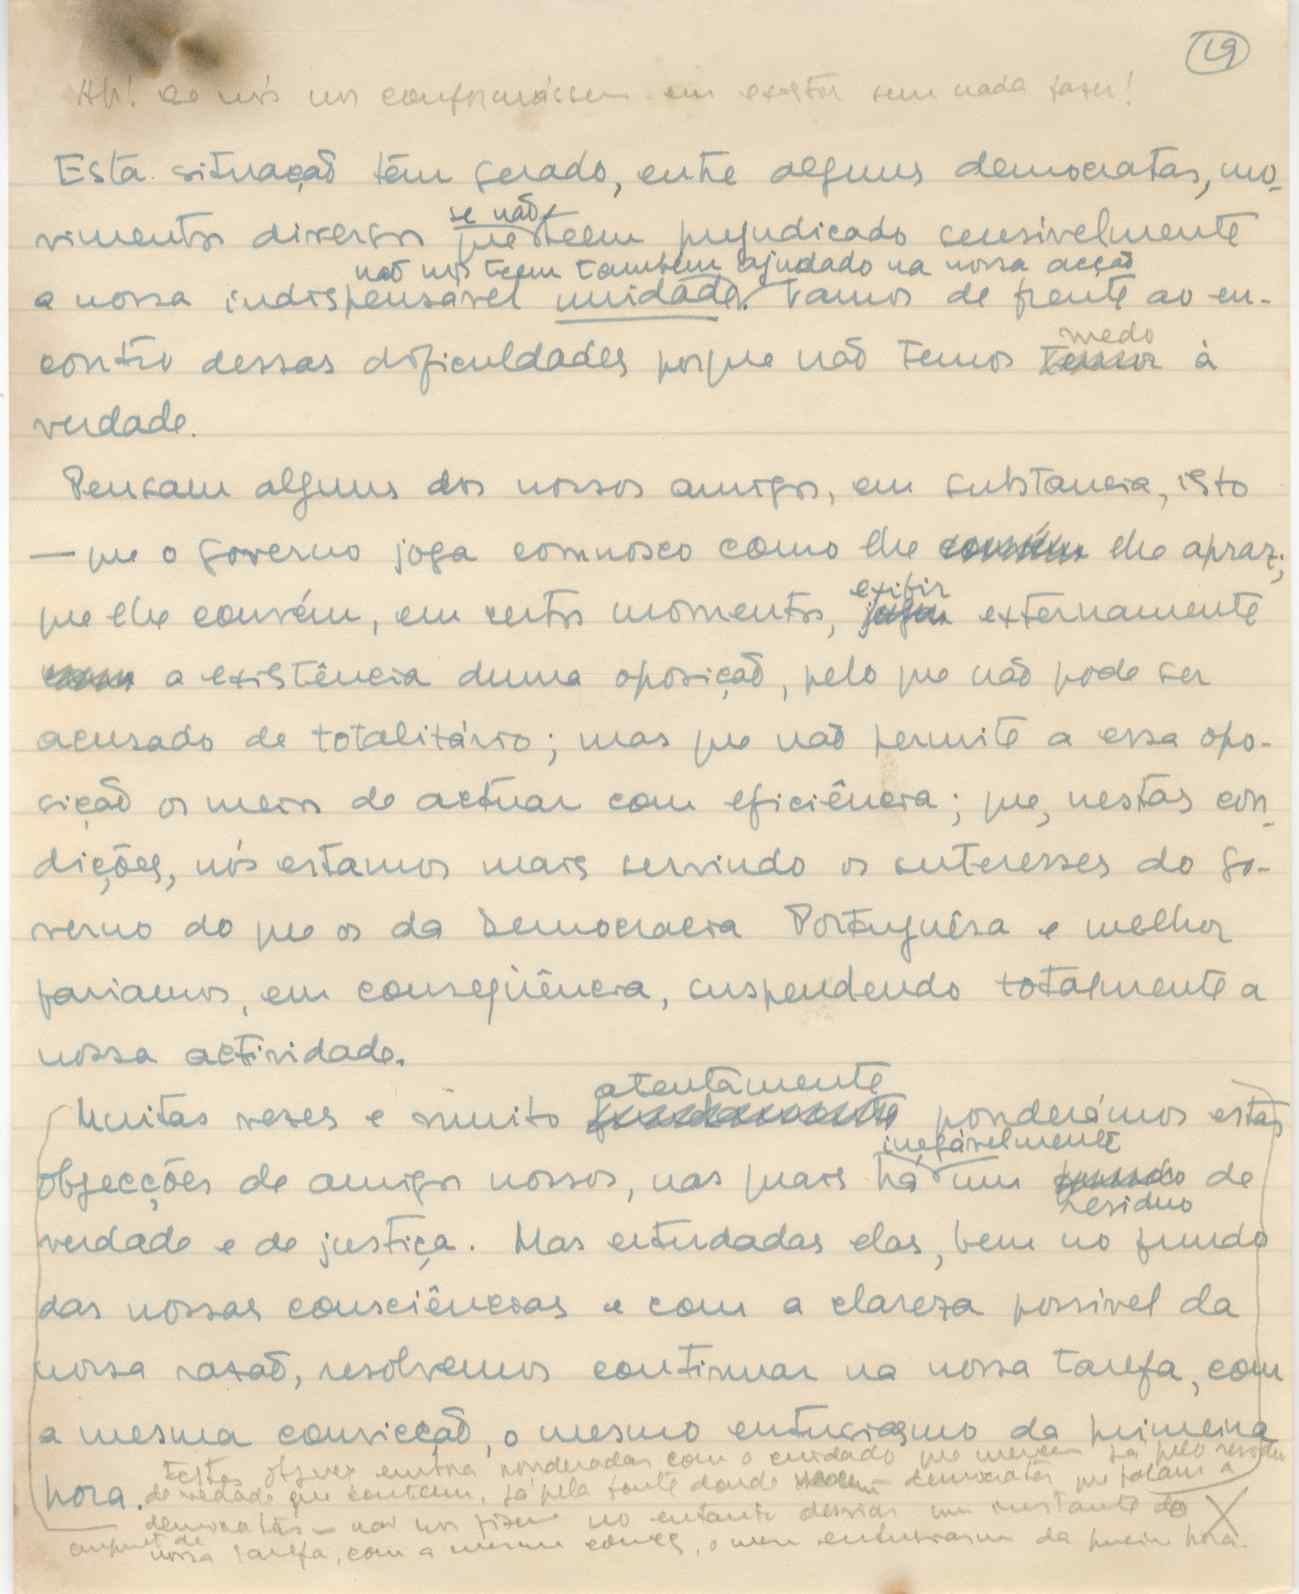 19
Ah! se nós nos conformássemos em existir sem nada fazer!
Esta situação têm gerado, entre alguns democratas, mo-
se não
vimentos diversos que teem prejudicado sensivelmente
não nos teem tambem ajudado na nossa acção
a nossa indispensável unidade. Vamos de frente ao en-
medo
contro dessas dificuldades porque não temos temor à
verdade.
Pensam alguns dos nossos amigos, em substancia, isto
— que o governo joga comnosco como lhe convém lhe apraz;
exibir
que lhe convém, em certos momentos, jogar externamente
a existência duma oposição, pelo que não pode ser
acusado de totalitário; mas que não permite a essa opo-
sição os meios de actuar com eficiência; que, nestas con-
dições, nós estamos mais servindo os interesses do go-
verno do que os da Democracia Portuguêsa e melhor
fariamos, em conseqüência, suspendendo totalmente a
nossa actividade.
atentamente
Muitas vezes e muito ponderámos estas
inegávelmente
objecções de amigos nossos, nas quais há um de
residuo
verdade e de justiça. Mas estudadas elas, bem no fundo
das nossas consciências e com a clareza possivel da
nossa razão, resolvemos continuar na nossa tarefa, com
a mesma convicção, o mesmo entusiasmo da primeira
hora.
Estas embora ponderadas com o cuidado que merecem já pelo residuo
de verdade que contem, já pela fonte donde veem – democratas que falam a
democratas – não nos fizeram no entanto desviar um instante da
nossa tarefa, com a mesma o mesmo entusiasmo da primeira hora.